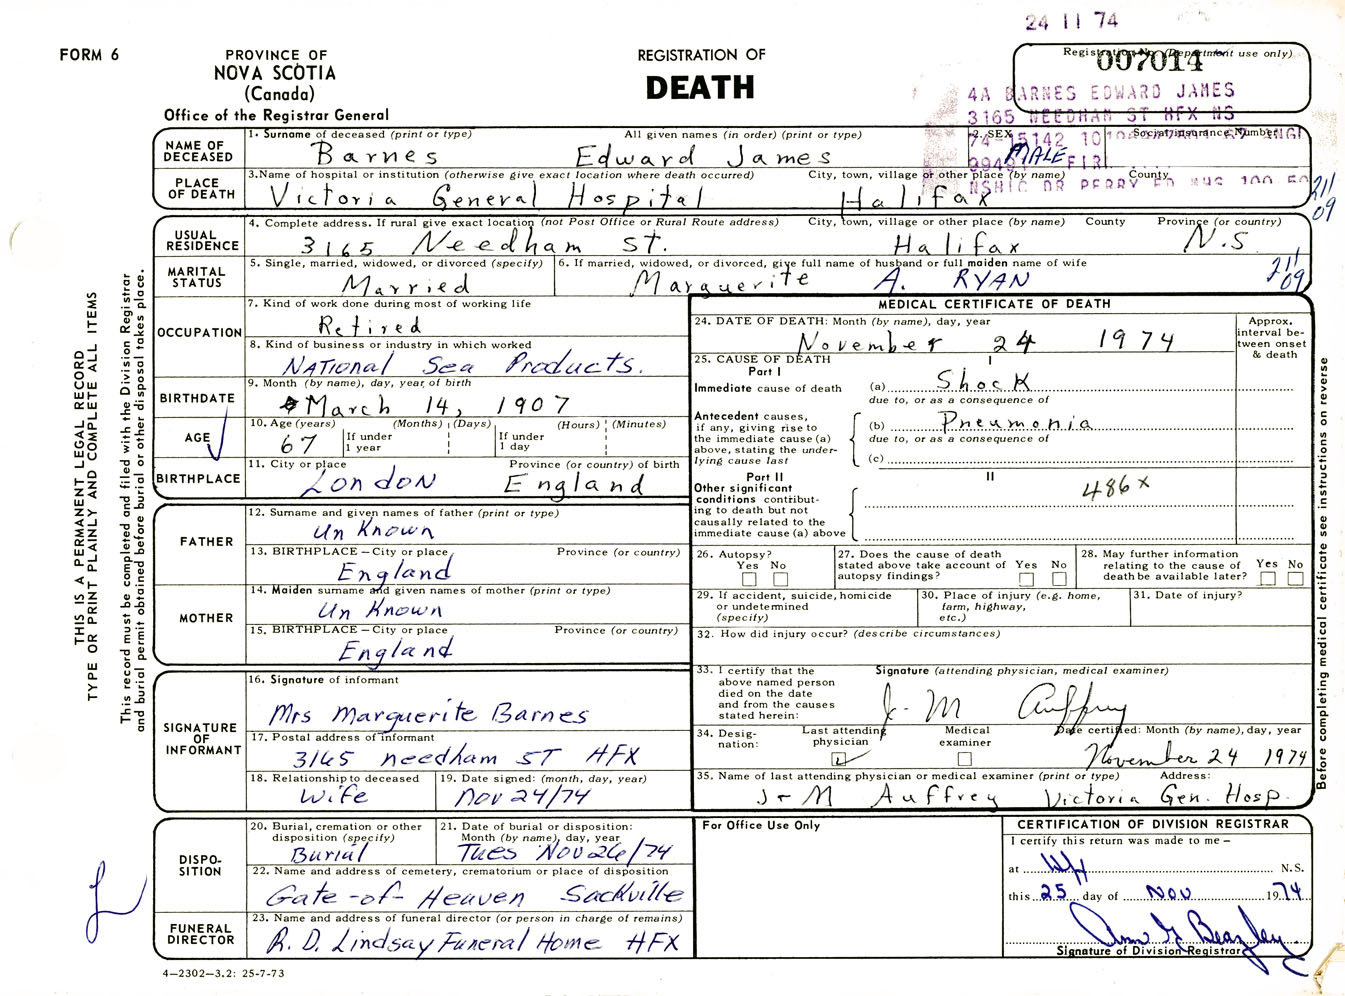 24 11 74
FORM 6
PROVINCE OF
NOVA SCOTIA
(Canada)
Office of the Registrar General
REGISTRATION OF
DEATH
Registration No. (Department use only)
007014
4A BARNES EDWARD JAMES
3165 NEEDHAM ST HFX NS
NAME OF DECEASED
1. Surname of deceased (print or type) All given names (in order) (print or type)
Barnes Edward James
2. SEX
MALE
Social Insurance Number
PLACE OF DEATH
3. Name of hospital or institution (otherwise give exact location where death occurred) City, town, village or other place (by name) County
Victoria General Hospital Halifax
211
09
USUAL RESIDENCE
4. Complete address. If rural give exact location (not Post Office or Rural Route address) City, town, village or other place (by name) County Province (or country)
3165 Needham St. Halifax N.S
MARITAL STATUS
5. Single, married, widowed, or divorced (specify)
Married
6. If married, widowed, or divorced, give full name of husband or full maiden name of wife
Marguerite A. RYAN
211
09
OCCUPATION
7. Kind of work done during most of working life
Retired
8. Kind of business or industry in which worked
National Sea Products.
BIRTHDATE
9. Month (by name), day, year of birth
March 14, 1907
AGE
10. Age (years) (Months) (Days) (Hours) (Minutes)
67 If under 1 year If under 1 day
BIRTHPLACE
11. City or place Province (or country) of birth
London England
FATHER
12. Surname and given names of father (print or type)
Un Known
13. BIRTHPLACE – City or place Province (or country)
England
MOTHER
14. Maiden surname and given names of mother (print or type)
Un Known
15. BIRTHPLACE – City or place Province (or country)
England
SIGNATURE OF INFORMANT
16. Signature of informant
Mrs Marguerite Barnes
17. Postal address of informant
3165 needham ST HFX
18. Relationship to deceased
Wife
19. Date signed: (month, day, year)
Nov 24/74
DISPO-
SITION
20. Burial, cremation or other disposition (specify)
Burial
21. Date of burial or disposition: Month (by name), day, year
Tues Nov 26/74
22. Name and address of cemetery, crematorium or place of disposition
Gate-of-Heaven Sackville
FUNERAL DIRECTOR
23. Name and address of funeral director (or person in charge of remains)
R. D. Lindsay Funeral Home HFX
4—2302—3.2: 25-7-73
MEDICAL CERTIFICATE OF DEATH
24. DATE OF DEATH: Month (by name), day, year
November 24 1974
Approx. interval be-
tween onset & death
25. CAUSE OF DEATH
Part I
I
Immediate cause of death
(a) Shock
due to, or as a consequence of
Antecedent causes,
if any, giving rise to
the immediate cause (a)
above, stating the under-
lying cause last
(b) Pneumonia
due to, or as a consequence of
(c)
Part II
II
Other significant
conditions contribut-
ing to death but not
causally related to the
immediate cause (a) above
486x
26. Autopsy?
Yes No
27. Does the cause of death
stated above take account of
autopsy findings?
Yes No
28. May further information
relating to the cause of
death be available later?
Yes No
29. If accident, suicide, homicide
or undetermined
(specify)
30. Place of injury (e.g. home,
farm, highway,
etc.)
31. Date of injury?
32. How did injury occur? (describe circumstances)
33. I certify that the
above named person
died on the date
and from the causes
stated herein:
Signature (attending physician, medical examiner)
J- M Auffrey
34. Desig-
nation:
Last attending
physician
Medical
examiner
Date certified: Month (by name), day, year
November 24 1974
35. Name of last attending physician or medical examiner (print or type) Address:
J-M Auffrey Victoria Gen. Hosp.
For Office Use Only
CERTIFICATION OF DIVISION REGISTRAR
I certify this return was made to me –
at Hfx N.S.
this 25 day of Nov 1974
Signature of Division Registrar
THIS IS A PERMANENT LEGAL RECORD
TYPE OR PRINT PLAINLY AND COMPLETE ALL ITEMS
This record must be completed and filed with the Division Registrar
and burial permit obtained before burial or other disposal takes place.
Before completing medical certificate see instructions on reverse